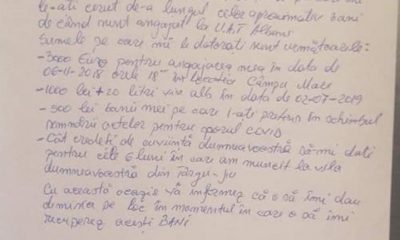 le-ați cerut de-a lungul celor aproximativ 3 ani
de când sunt angajat la UAT Albeni
Sumele pe care mi le datorați sunt următoarele:
- 3000 Euro pentru angajarea mea în data de
06-11-2018 orele 18⁰⁰ în locația Câmpu Mare
- 1000 lei + 20 litri vin alb în data de 02-07-2019
- 500 lei banii mei pe care i-ați pretins în schimbul
semnării actelor pentru sporul covid
- Cât credeți de cuviință dumneavoastră să-mi dați
pentru cele 6 luni în care am muncit la vila
dumneavoastră din Târgu-Jiu
Cu această ocazie vă informez că o să îmi dau
demisia pe loc în momentul în care o să îmi
recuperez acești BANI